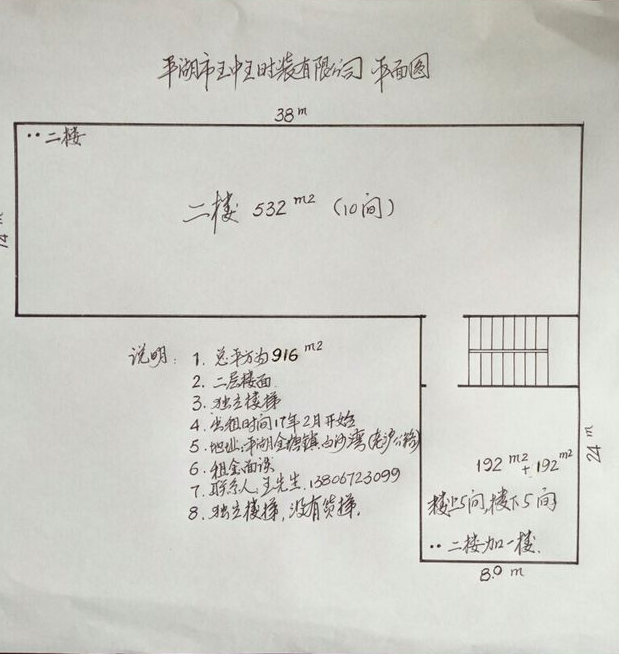 平湖市王中王时装有限公司 平面图
38 m
·· 二楼
14 m
二楼 532 m2 (10间)
说明: 1. 总平方为916 m2
2. 二层楼面
3. 独立楼梯
4. 出租时间17年2月开始
5. 地址:平湖全塘镇白沙湾(老沪公路)
6. 租金面谈
7. 联系人王先生.13806723099
8. 独立楼梯,没有货梯.
24 m
192 m2 + 192 m2
楼上5间,楼下5间
·· 二楼加一楼.
8.0 m